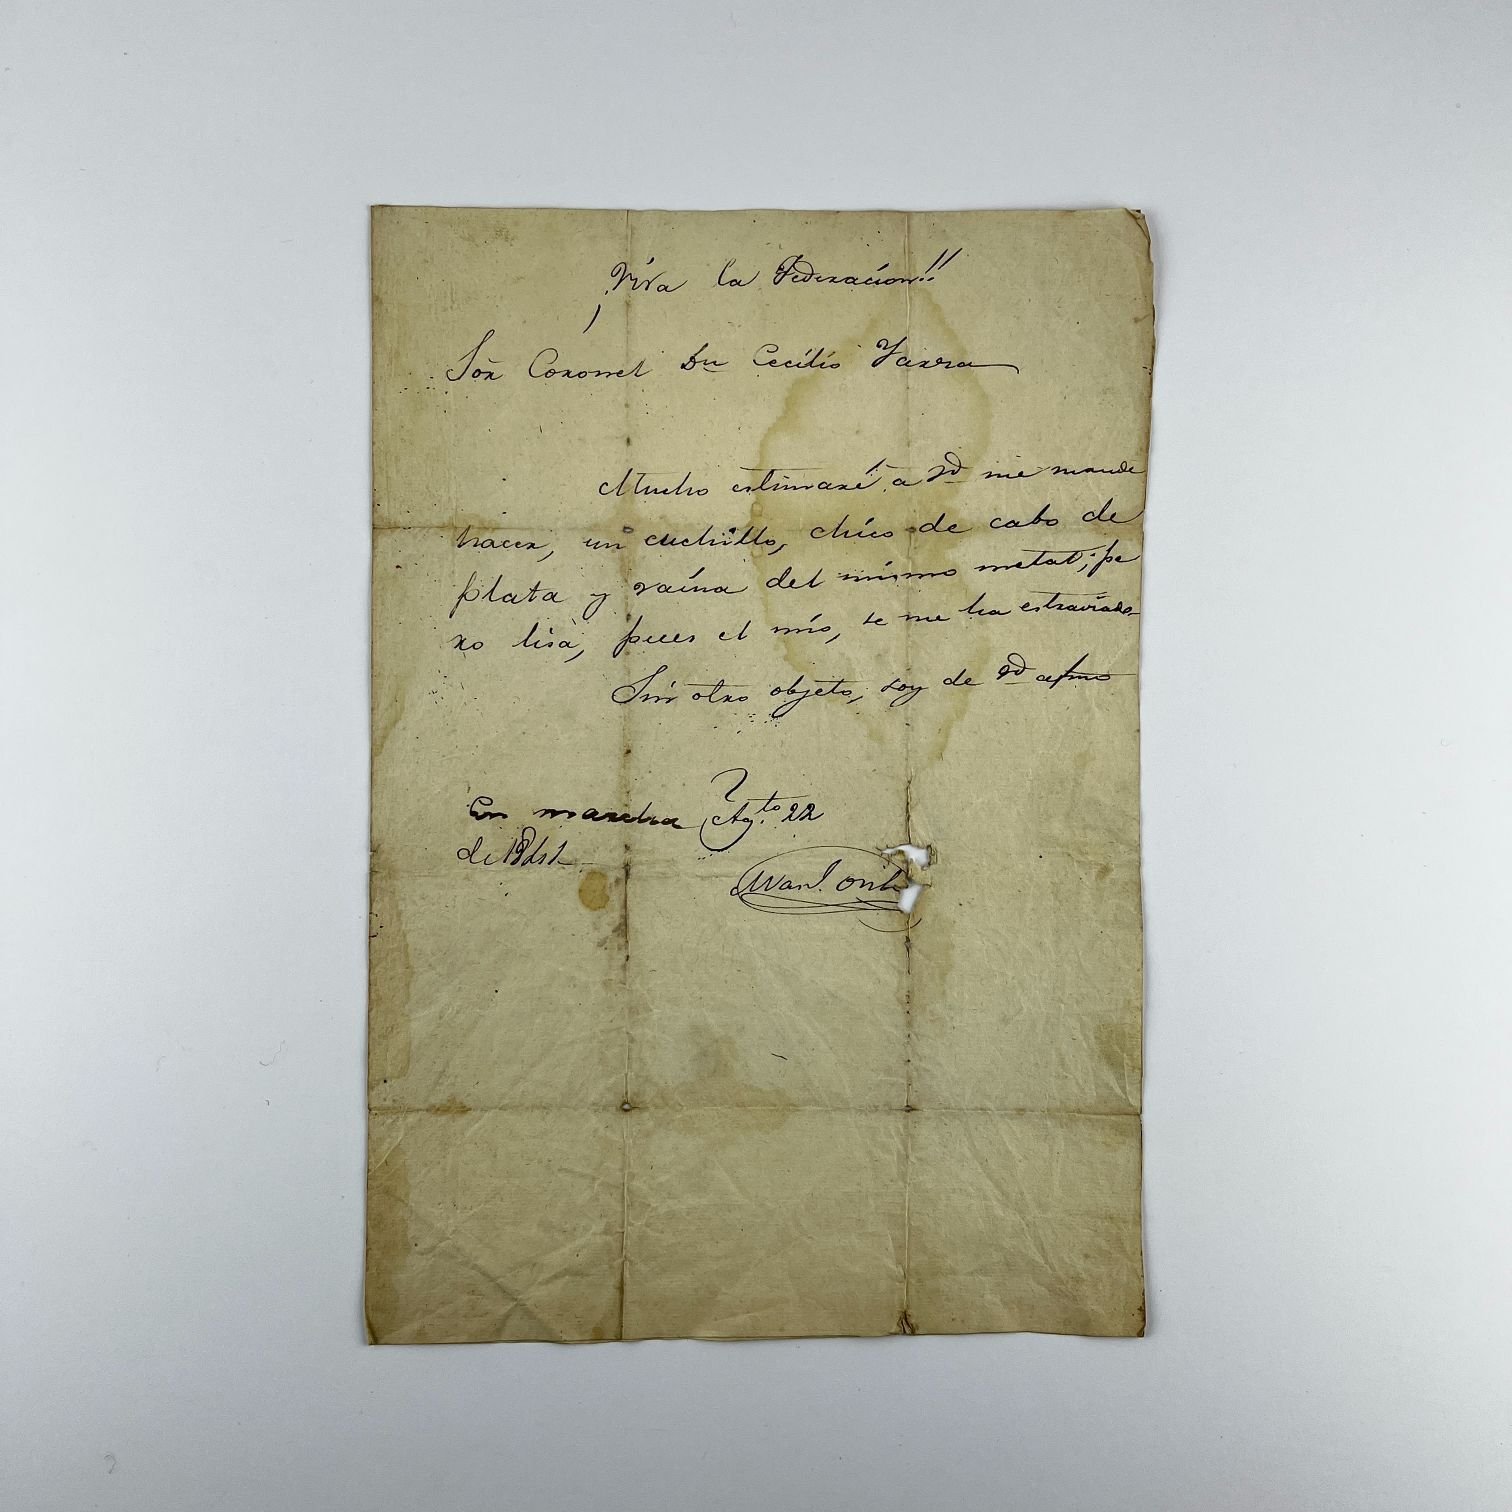 ¡Viva la Federacion!!
Sor Coronel Dn Cecilio Yarza
Mucho estimaré a Vd me mande
hacer, un cuchillo, chico de cabo de
plata y vaina del mismo metal; pe
ro lisa, pues el mio, se me ha estraviado
Sin otro objeto, soy de Vd afmo
En marcha Agto 22
de 1851
Man l. Oribe